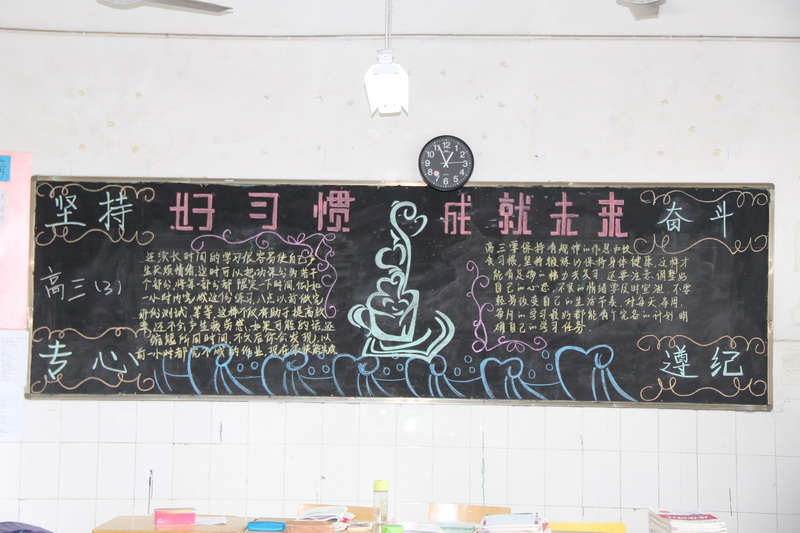 坚持
好习惯
成就未来
奋斗
高三(3)
专心
遵纪
连续长时间的学习很容易使自己产
生厌烦情绪,这时可以把功课分为若干
个部分,将每一部分都限定一个时间,例如
一小时内完成这份练习,八点以前做完
那份测试,等等,这样不仅有助于提高效
率,还不会产生疲劳感,如果可能的话,逐
步缩短所用时间,不久后你会发现,以
前一小时都完不成的作业,现在
高三要保持有规律的作息
食习惯,坚持锻炼以保持身体健康,这样才
能有足够的精力来复习,还要注意调整好
自己的心态,不良的情绪要及时宣泄,不要
轻易改变自己的生活节奏,对每天、每周、
每月的学习最好都能有个完备的计划,明
确自己的学习任务.
12
1
2
3
4
5
6
7
8
9
10
11